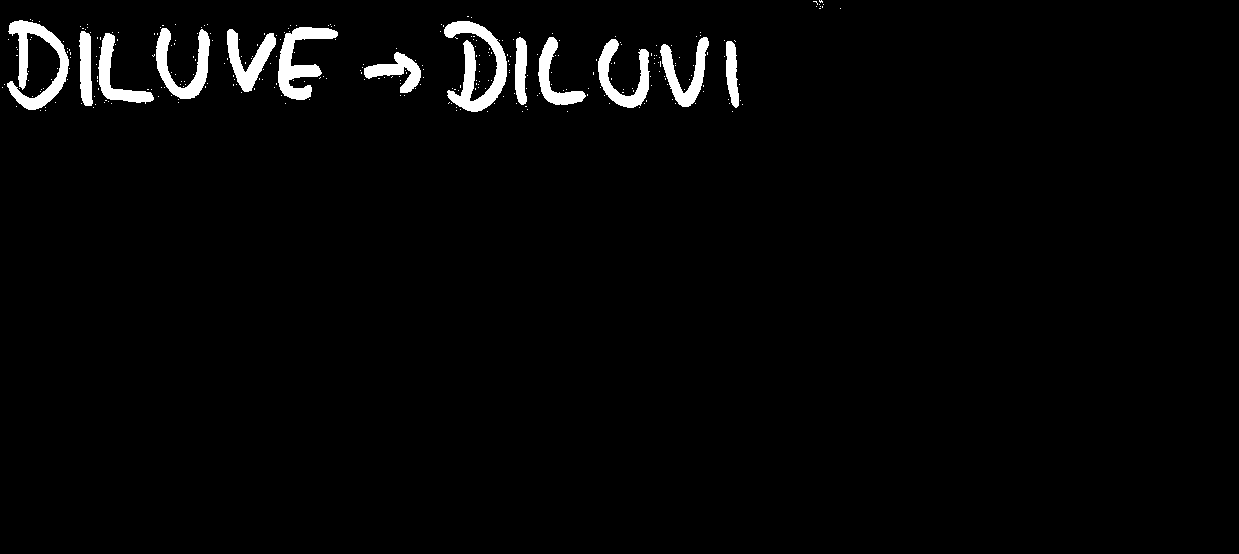 DILUVE → DILUVI